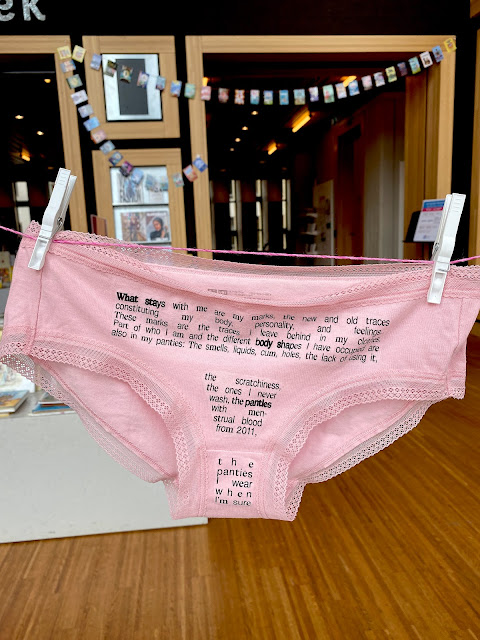 ek
What stays with me are my marks, the new and old traces
constituting my body, personality, and feelings.
These marks are the traces, I leave behind in my clothes.
Part of who I am and the different body shapes I have occupied are
also in my panties: The smells, liquids, cum, holes, the lack of using it,
the scratchiness,
the ones I never
wash, the panties
with men-
strual blood
from 2011,
the
panties
I wear
when
I'm sure